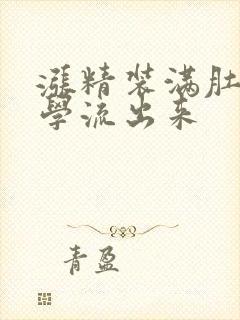 漲精装满肚
學流出来
青盈